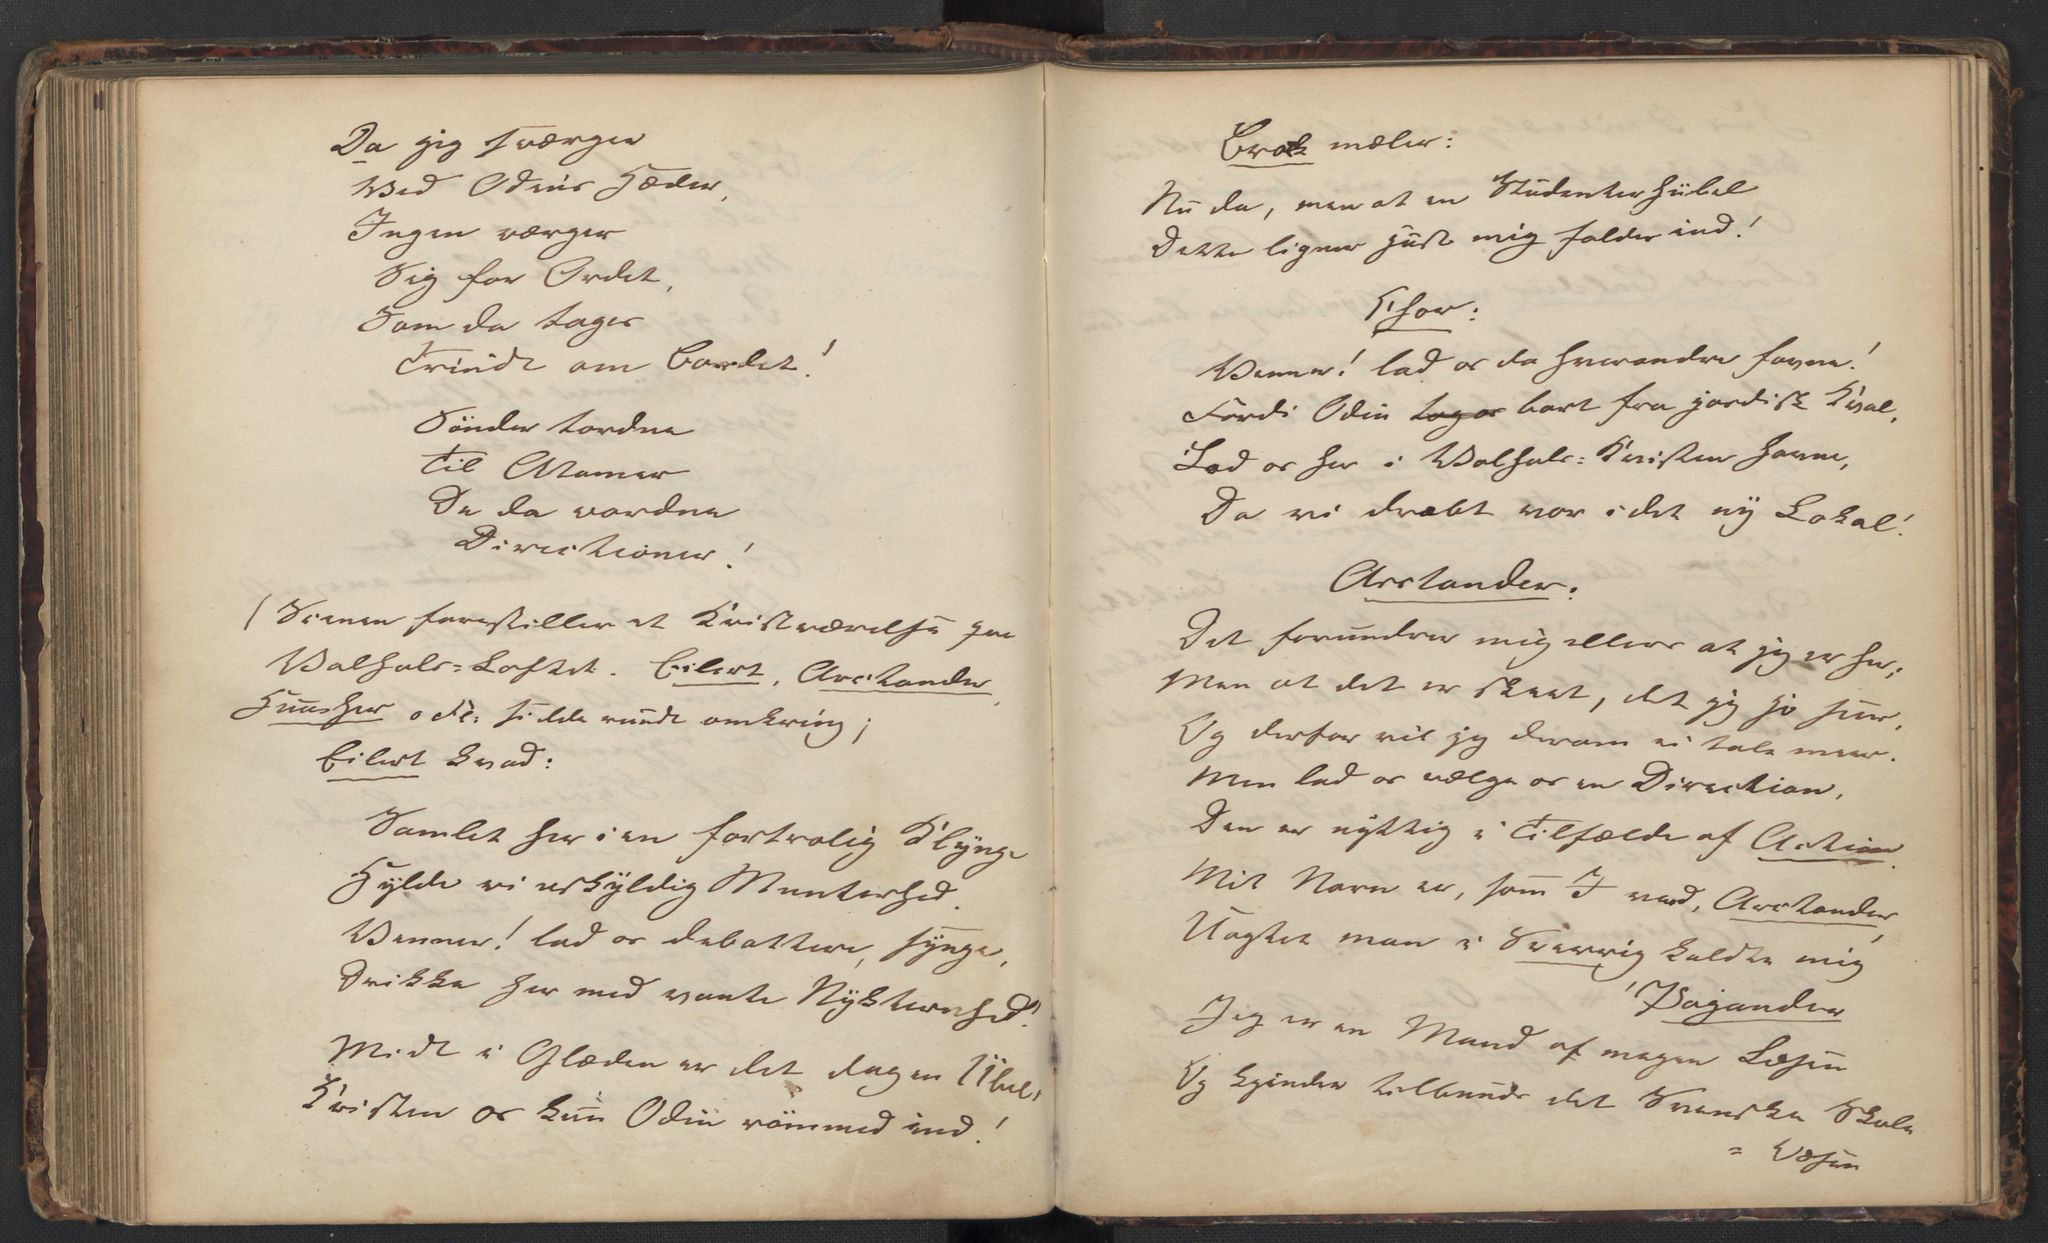 Da jeg sværger
Ved Odins Hæder,
Ingen værger
Sig for Ordet,
Som da tages
Trindt om Bordet!
Sønder tordne
Til Atomer
De da vordne
Directioner!
(Scenen forestiller et Kvistværelse paa
Valhals-Loftet. Eilert, Arctander,
Huusher o Fl: sidde rundt omkring;
Eilert kvad:
Samlet her i en fortrolig Klynge
Hylde vi uskyldig Munterhed.
Venner! lad os debattere, synge,
Drikke her med vante Nykternhed!
Midt i Glæden er det dog en Ubel:
Kvisten os kun Odin rømmed ind!
Brok mæler:
Nu da, men at en Studenterhybel
Dette ligner just mig falder ind!
Thor:
Venner! lad os da hverandre favne!
Fordi Odin tog os bort fra jordisk Kval,
Lad os her i Valhals-Kvisten havne,
Da vi dræbt var i det ny Lokal!
Arctander:
Det forundrer mig ellers at jeg er her;
Men at det er skeet, det jeg jo seer,
Og derfor vil jeg derom ei tale meer.
Men lad os vælge os en Direction,
Den er nyttig i Tilfælde af Action.
Mit Navn er, som I veed, Arctander,
Uagtet man i Sverrig kaldte mig
Pajander
Jeg er en Mand af megen Læsen
Og kjender tilbunds det Svenske Skole
= Væsen